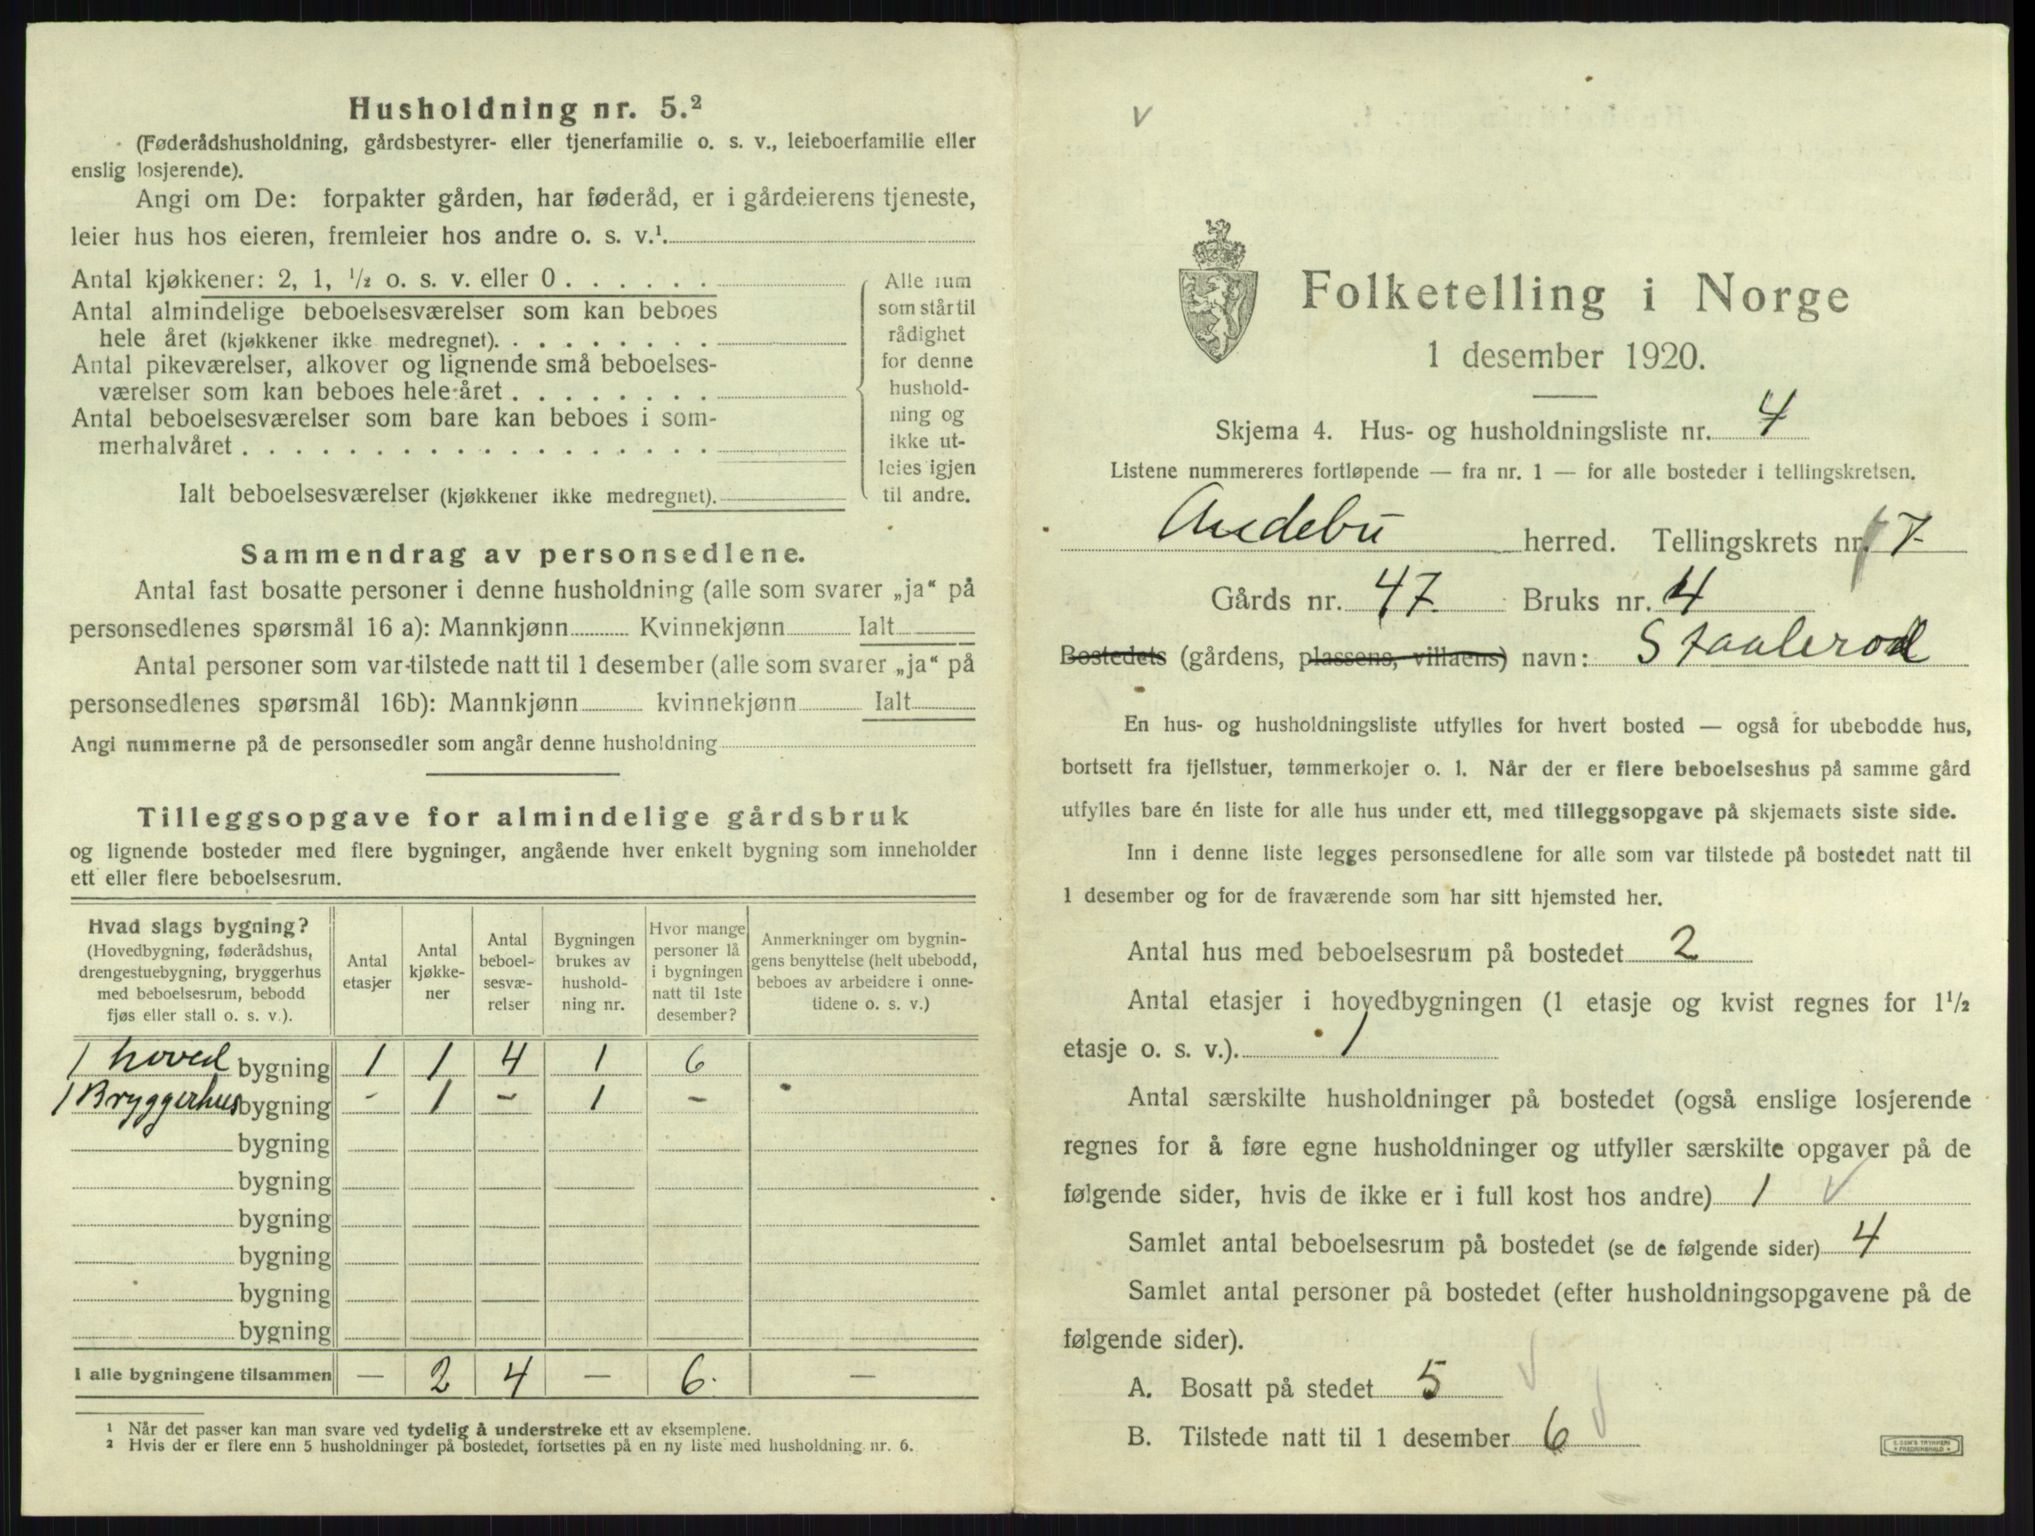 Husholdning nr. 5.²
(Føderådshusholdning, gårdsbestyrer- eller tjenerfamilie o. s. v., leieboerfamilie eller
enslig losjerende).
Angi om De: forpakter gården, har føderåd, er i gårdeierens tjeneste,
leier hus hos eieren, fremleier hos andre o. s. v.¹
Antal kjøkkener: 2, 1, ½ o. s. v. eller 0
Antal almindelige beboelsesværelser som kan beboes
hele året (kjøkkener ikke medregnet).
Antal pikeværelser, alkover og lignende små beboelses-
værelser som kan beboes hele året
Antal beboelsesværelser som bare kan beboes i som-
merhalvåret
Ialt beboelsesværelser (kjøkkener ikke medregnet).
Alle rum
som står til
rådighet
for denne
hushold-
ning og
ikke ut-
leies igjen
til andre.
Sammendrag av personsedlene.
Antal fast bosatte personer i denne husholdning (alle som svarer „ja“ på
personsedlenes spørsmål 16 a): Mannkjønn Kvinnekjønn Ialt
Antal personer som var tilstede natt til 1 desember (alle som svarer „ja“ på
personsedlenes spørsmål 16b): Mannkjønn kvinnekjønn Ialt
Angi nummerne på de personsedler som angår denne husholdning
Tilleggsopgave for almindelige gårdsbruk
og lignende bosteder med flere bygninger, angående hver enkelt bygning som inneholder
ett eller flere beboelsesrum.
Hvad slags bygning?
(Hovedbygning, føderådshus,
drengestuebygning, bryggerhus
med beboelsesrum, bebodd
fjøs eller stall o. s. v.).
Antal
etasjer
Antal
kjøkke-
ner
Antal
beboel-
sesvæ-
relser
Bygningen
brukes av
hushold-
ning nr.
Hvor mange
personer lå
i bygningen
natt til 1ste
desember?
Anmerkninger om bygnin-
gens benyttelse (helt ubebodd,
beboes av arbeidere i onne-
tidene o. s. v.)
1 hoved bygning 1 1 4 1 6
1 Bryggerhus bygning - 1 - 1 -
bygning
bygning
bygning
bygning
bygning
bygning
I alle bygningene tilsammen — 2 4 — 6. —
¹ Når det passer kan man svare ved tydelig å understreke ett av eksemplene.
² Hvis der er flere enn 5 husholdninger på bostedet, fortsettes på en ny liste med husholdning nr. 6.
v
Folketelling i Norge
1 desember 1920.
Skjema 4. Hus- og husholdningsliste nr. 4
Listene nummereres fortløpende — fra nr. 1 — for alle bosteder i tellingskretsen.
Andebu herred. Tellingskrets nr. 7
Gårds nr. 47 Bruks nr. 4
Bostedets (gårdens, plassens, villaens) navn: Staalerød
En hus- og husholdningsliste utfylles for hvert bosted — også for ubebodde hus,
bortsett fra fjellstuer, tømmerkojer o. l. Når der er flere beboelseshus på samme gård
utfylles bare én liste for alle hus under ett, med tilleggsopgave på skjemaets siste side.
Inn i denne liste legges personsedlene for alle som var tilstede på bostedet natt til
1 desember og for de fraværende som har sitt hjemsted her.
Antal hus med beboelsesrum på bostedet 2
Antal etasjer i hovedbygningen (1 etasje og kvist regnes for 1½
etasje o. s. v.). 1
Antal særskilte husholdninger på bostedet (også enslige losjerende
regnes for å føre egne husholdninger og utfyller særskilte opgaver på de
følgende sider, hvis de ikke er i full kost hos andre) 1 v
Samlet antal beboelsesrum på bostedet (se de følgende sider) 4
Samlet antal personer på bostedet (efter husholdningsopgavene på de
følgende sider).
A. Bosatt på stedet 5 v
B. Tilstede natt til 1 desember 6 v